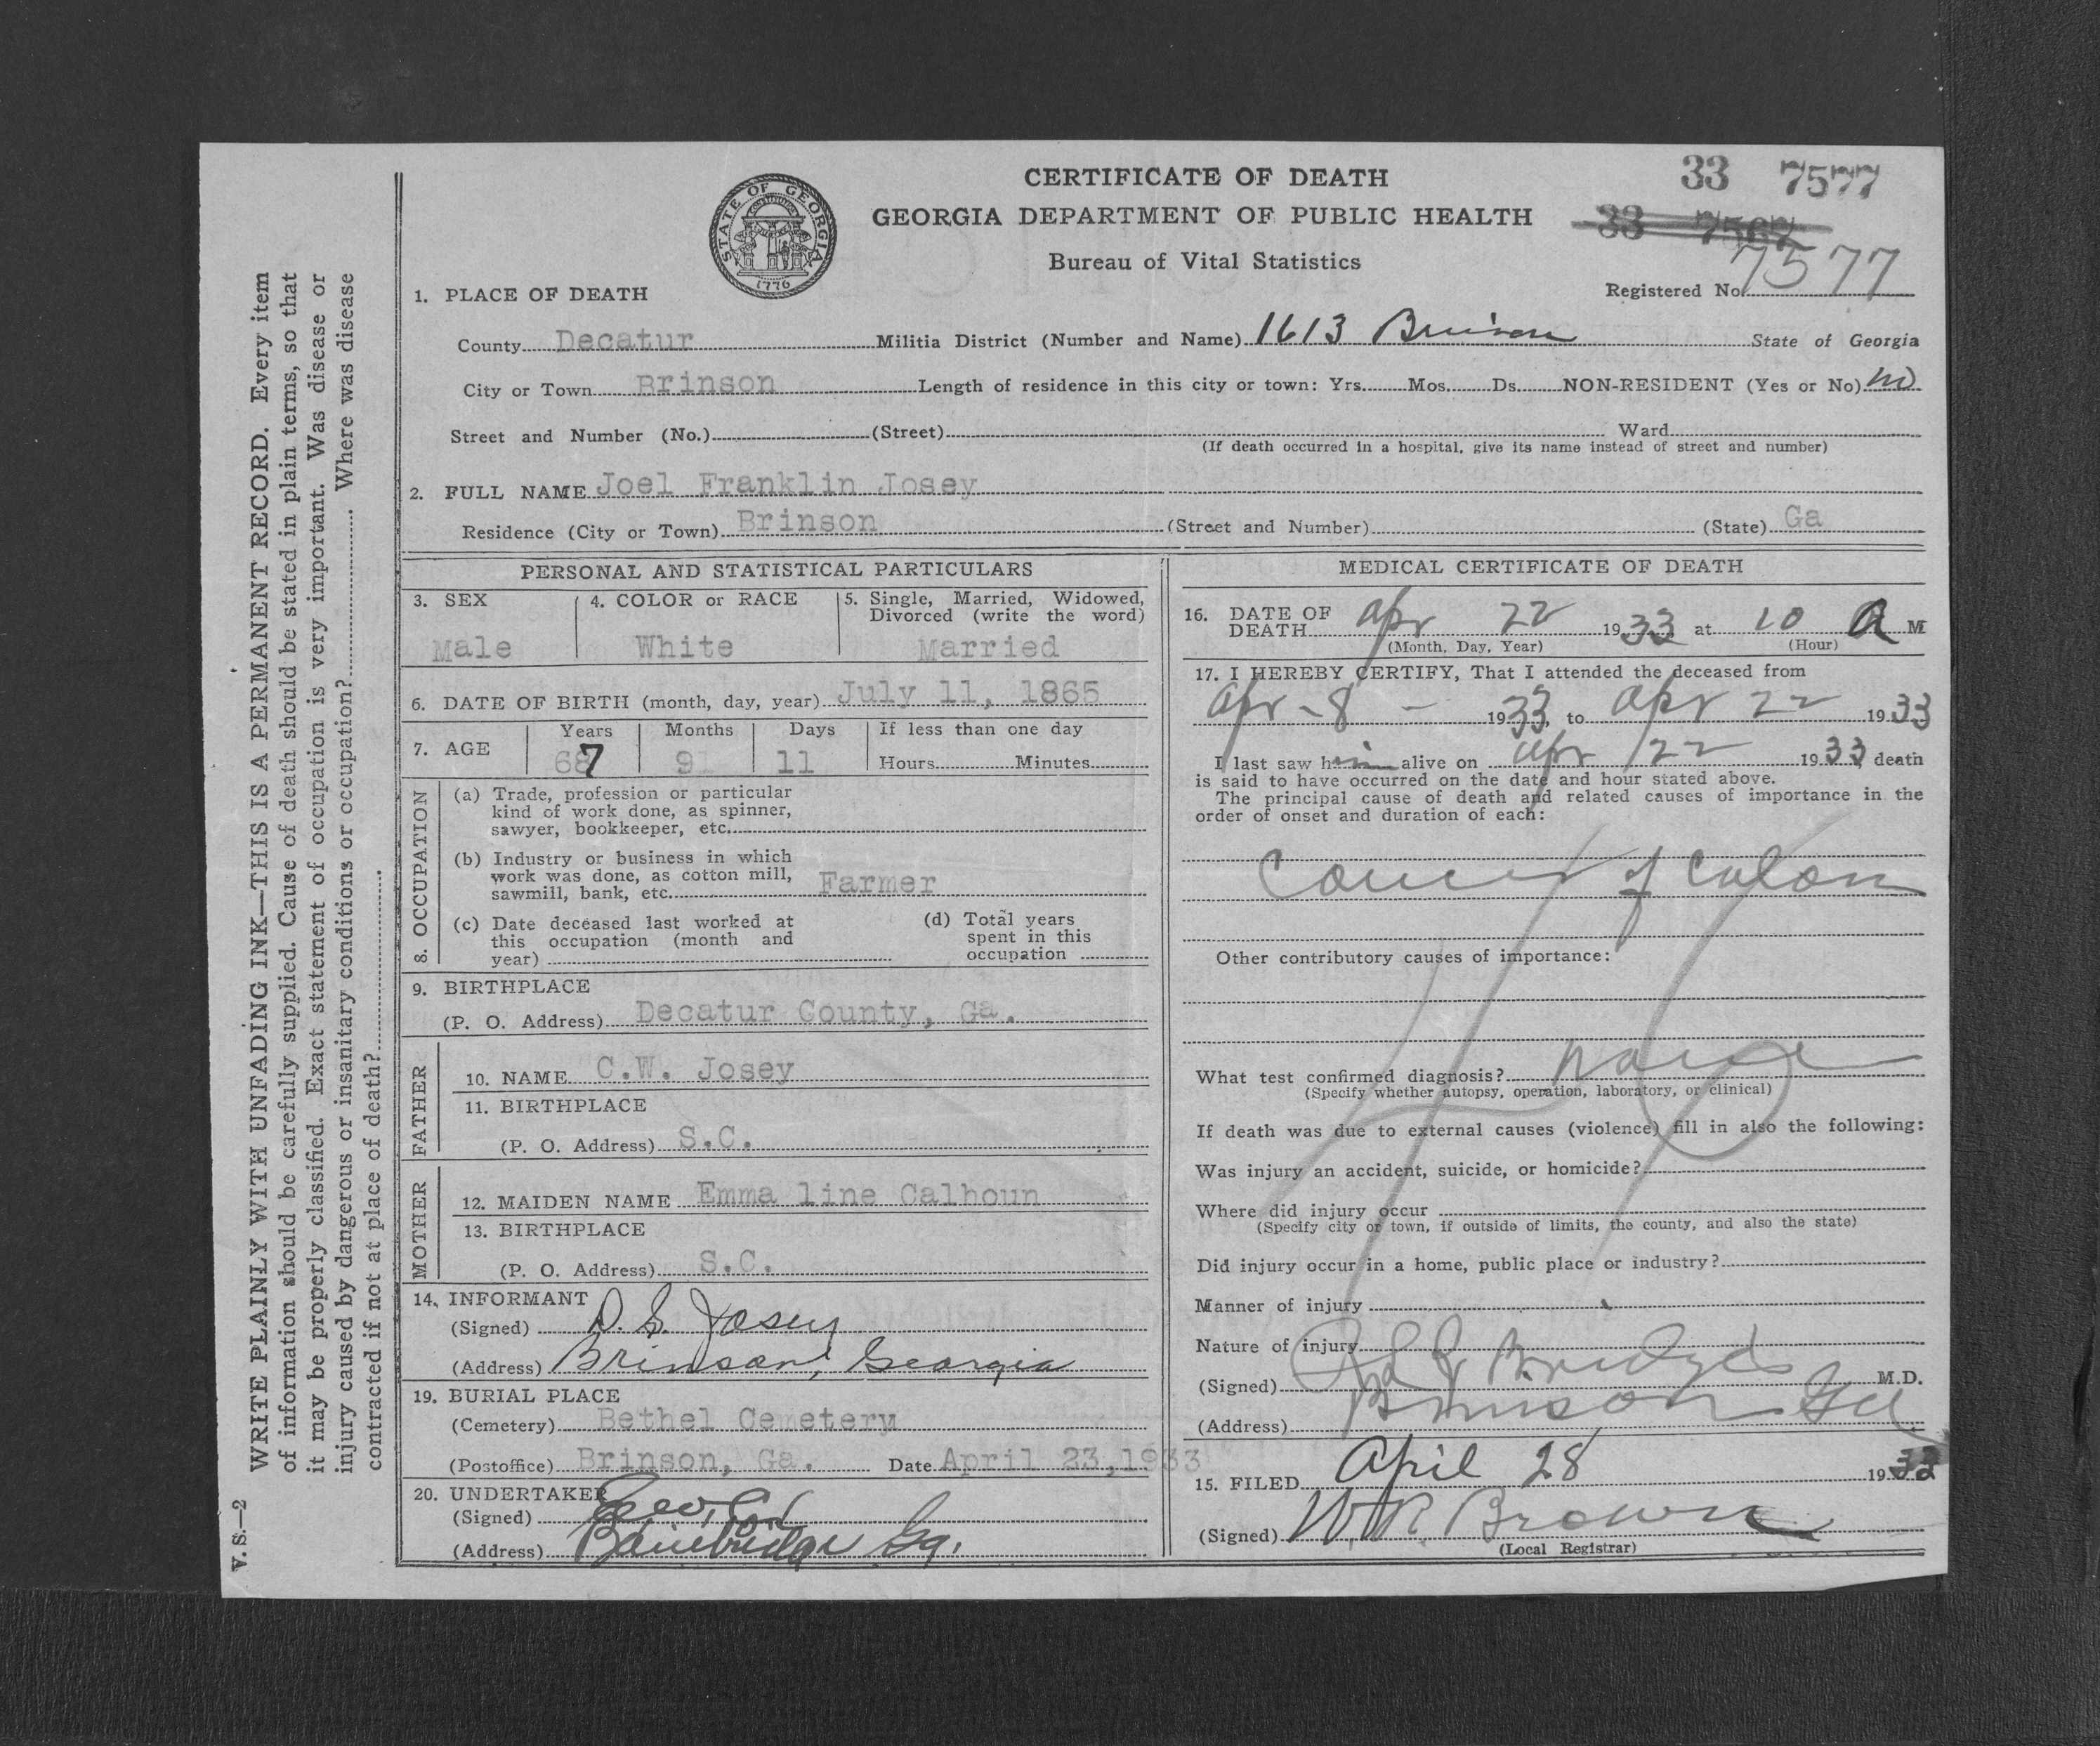 CERTIFICATE OF DEATH
GEORGIA DEPARTMENT OF PUBLIC HEALTH
Bureau of Vital Statistics
STATE OF GEORGIA
CONSTITUTION
1776
33 7577
33 7567
Registered No. 7577
1. PLACE OF DEATH
County Decatur Militia District (Number and Name) 1613 Brinson State of Georgia
City or Town Brinson Length of residence in this city or town: Yrs. Mos. Ds. NON-RESIDENT (Yes or No) no
Street and Number (No.) (Street) Ward
(If death occurred in a hospital, give its name instead of street and number)
2. FULL NAME Joel Franklin Josey
Residence (City or Town) Brinson (Street and Number) (State) Ga
PERSONAL AND STATISTICAL PARTICULARS
3. SEX 4. COLOR or RACE 5. Single, Married, Widowed,
Divorced (write the word)
Male White Married
6. DATE OF BIRTH (month, day, year) July 11, 1865
7. AGE Years Months Days If less than one day
67 9 11 Hours Minutes
8. OCCUPATION
(a) Trade, profession or particular
kind of work done, as spinner,
sawyer, bookkeeper, etc.
(b) Industry or business in which
work was done, as cotton mill,
sawmill, bank, etc. Farmer
(c) Date deceased last worked at
this occupation (month and
year)
(d) Total years
spent in this
occupation
9. BIRTHPLACE
(P. O. Address) Decatur County, Ga.
FATHER
10. NAME C.W. Josey
11. BIRTHPLACE
(P. O. Address) S.C.
MOTHER
12. MAIDEN NAME Emma line Calhoun
13. BIRTHPLACE
(P. O. Address) S.C.
14. INFORMANT
(Signed) D. S. Josey
(Address) Brinson, Georgia
19. BURIAL PLACE
(Cemetery) Bethel Cemetery
(Postoffice) Brinson, Ga. Date April 23, 1933
20. UNDERTAKER
(Signed)
(Address) Bainbridge Ga.
MEDICAL CERTIFICATE OF DEATH
16. DATE OF
DEATH Apr 22 1933 at 10 A M
(Month, Day, Year) (Hour)
17. I HEREBY CERTIFY, That I attended the deceased from
Apr - 8 - 1933, to Apr 22 1933
I last saw him alive on Apr 22 1933 death
is said to have occurred on the date and hour stated above.
The principal cause of death and related causes of importance in the
order of onset and duration of each:
Cancer of Colon
Other contributory causes of importance:
What test confirmed diagnosis? None
(Specify whether autopsy, operation, laboratory, or clinical)
If death was due to external causes (violence) fill in also the following:
Was injury an accident, suicide, or homicide?
Where did injury occur
(Specify city or town, if outside of limits, the county, and also the state)
Did injury occur in a home, public place or industry?
Manner of injury
Nature of injury
(Signed) Bridges M.D.
(Address) Brinson Ga
15. FILED April 28 1933
(Signed) W R Brown
(Local Registrar)
WRITE PLAINLY WITH UNFADING INK—THIS IS A PERMANENT RECORD. Every item
of information should be carefully supplied. Cause of death should be stated in plain terms, so that
it may be properly classified. Exact statement of occupation is very important. Was disease or
injury caused by dangerous or insanitary conditions or occupation? Where was disease
contracted if not at place of death?
V. S.—2